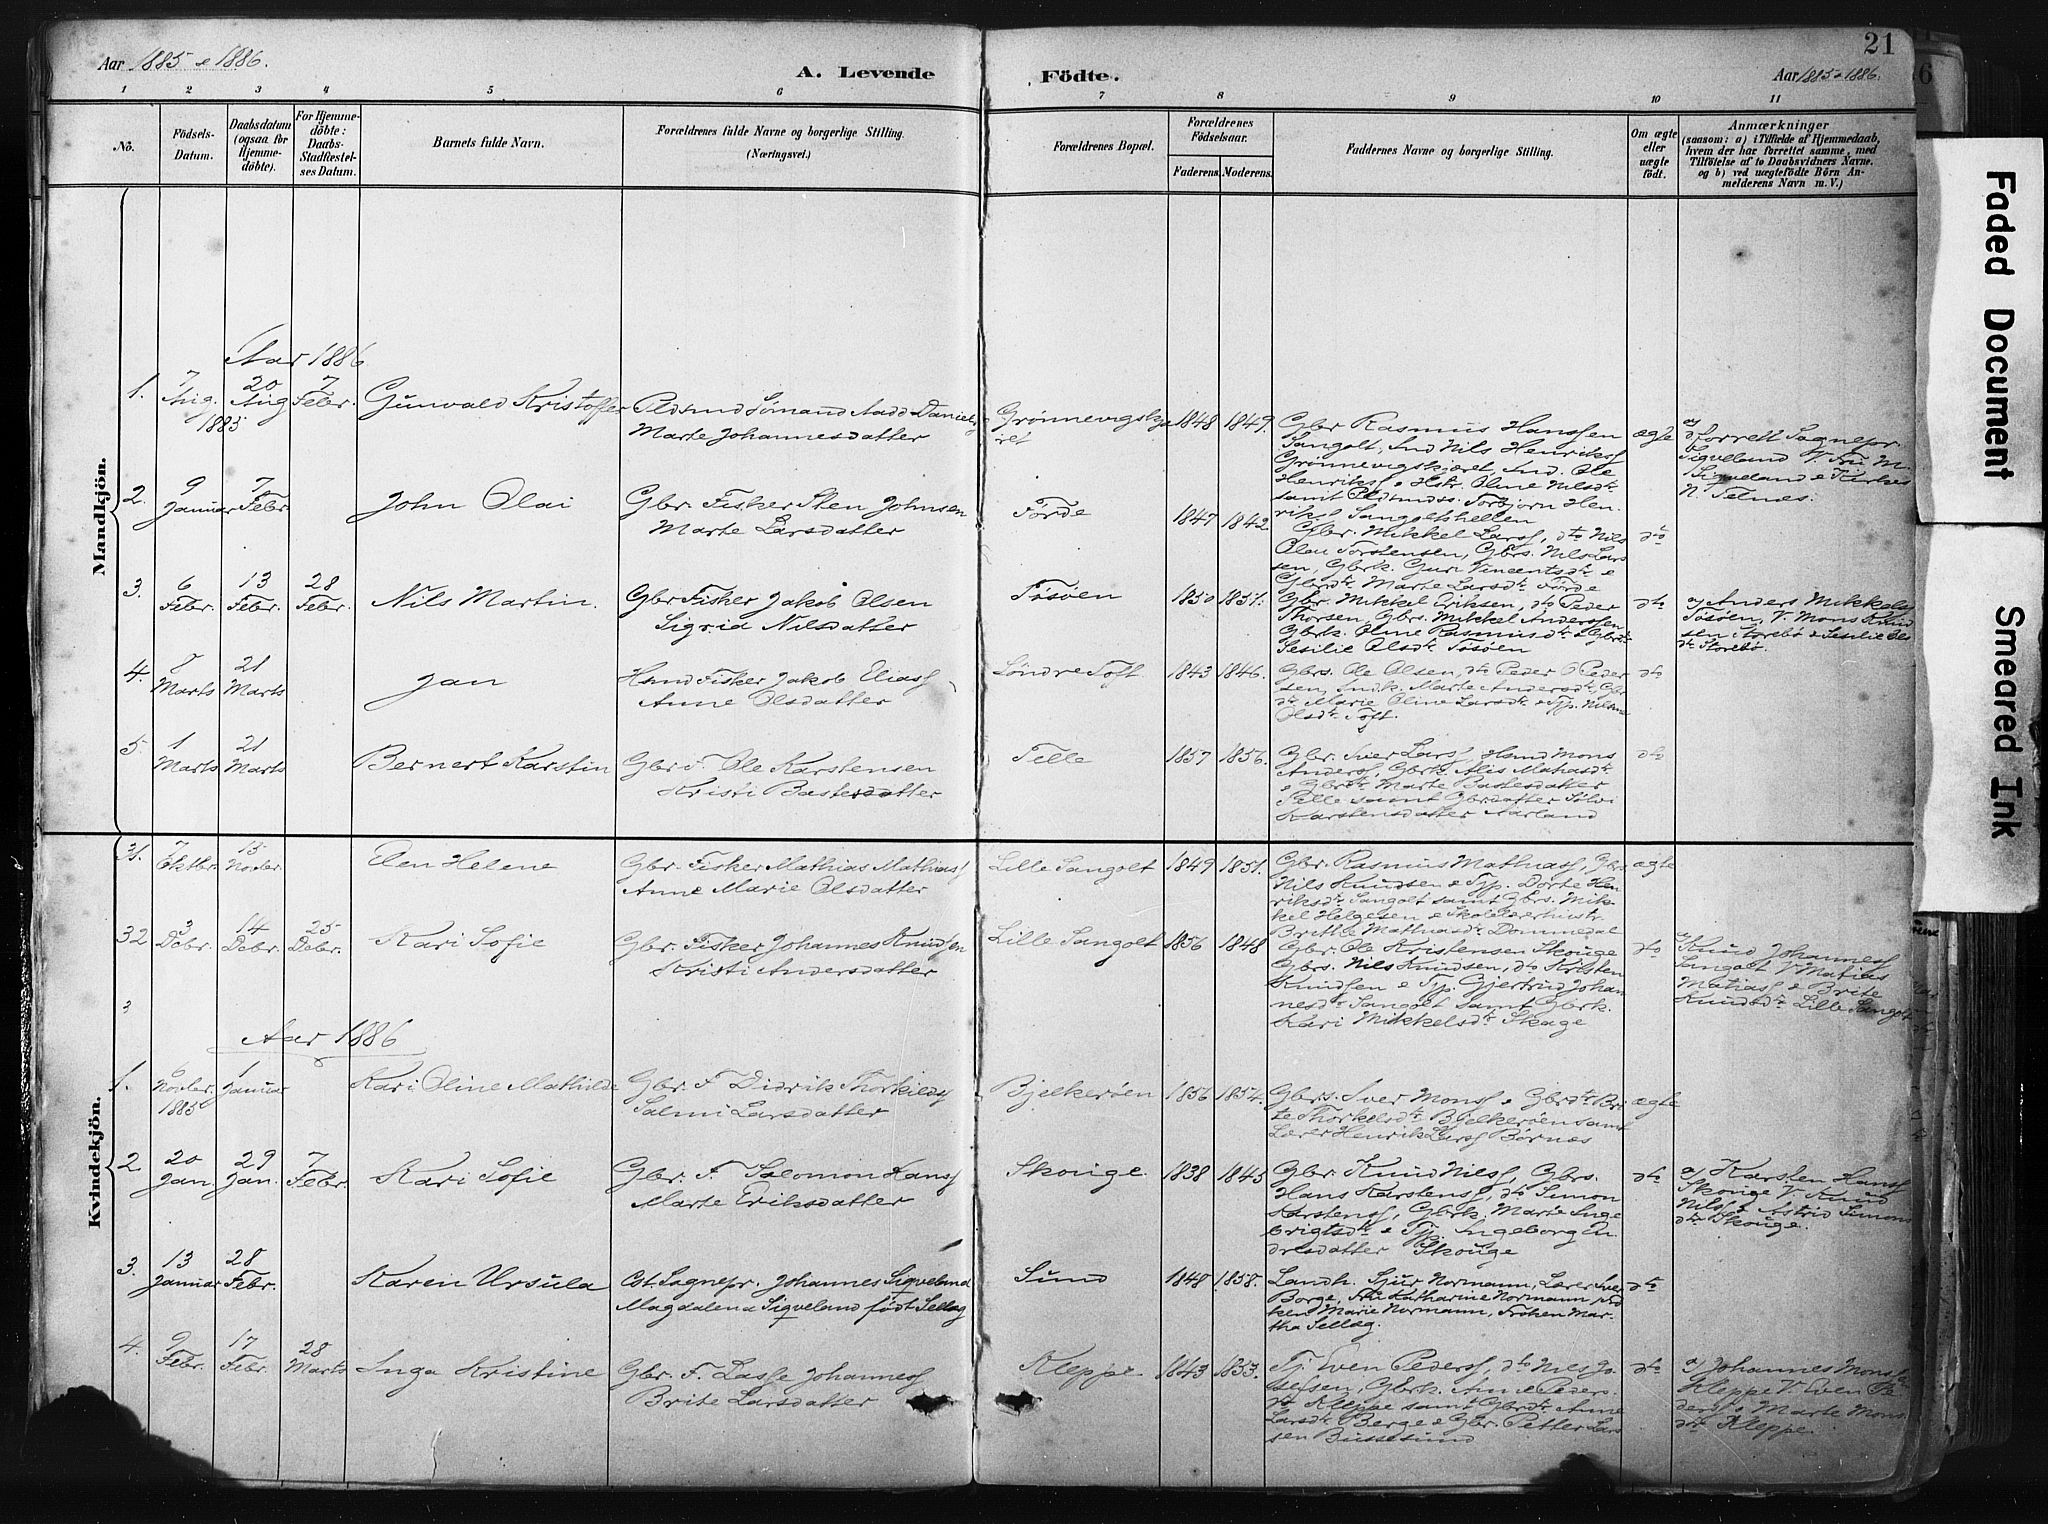 Aar 1885 & 1886.
A. Levende Födte.
Aar 1885 & 1886.
21
1 2 3 4 5 6 7 8 9 10 11
No.
Födsels-
Datum.
Daabsdatum
(ogsaa for
Hjemme-
döbte).
For Hjemme-
döbte:
Daabs-
Stadfæstel-
ses Datum.
Barnets fulde Navn.
Forældrenes fulde Navne og borgerlige Stilling.
(Næringsvei.)
Forældrenes Bopæl.
Forældrenes
Födselsaar.
Faderens. Moderens.
Faddernes Navne og borgerlige Stilling.
Om ægte
eller
uægte
födt.
Anmærkninger
(saasom: a) i Tilfælde af Hjemmedaab,
hvem der har forrettet samme, med
Tilföielse af to Daabsvidners Navne.
og b) ved uægtefödte Börn An-
melderens Navn m. V.)
Mandkjön.
Aar 1886
1. 7 Aug. 1885
20 Aug
7 Febr.
Gunvald Kristoffer
Pldsmd Sömand Aad Daniels
Marte Johannesdatter
Grönnevigskjæ
ret
1848 1849.
Gbr Rasmus Hanssen
Sangolt, Ind Nils Henriks
Grönnevigskjæret, Ind. Ole
Henriks & Hstr. Oline Nilsdr
samt Pldsmdss. Torbjorn Hen-
riks Sangoltshellen
ægte
a) forrett Sognepr.
Sigveland V. Fru M.
Sigveland & Kirkes
N Telnes.
2. 9 Januar
7 Febr.
John Olai
Gbr. Fisker Sten Johnsen
Marte Larsdatter
Förde
1847 1842.
Gbr. Mikkel Lars, dto Nils
Olau Torstensen, Gbrs. Nils Lars
sen, Gbrk. Guri Vincentsdr &
Gbrdtr Marte Larsdr Förde
dto
3. 6 Febr.
13 Febr.
28 Febr.
Nils Martin.
Gbr Fisker Jakob Olsen
Sigrid Nilsdatter
Tösöen
1850 1851.
Gbr. Mikkel Eriksen, dto Peder
Thorsen, Gbrs. Mikkel Anderssen
Gbrk. Oline Rasmusdr & Gbrdtr
Sesilie Olsdr Tösöen
dto
a) Anders Mikkels
Tösöen, V. Mons Knud
sen Storebö & Sesilie Ols
dtr Storebö.
4. 8 Marts
21 Marts
Jan
Hsmd Fisker Jakob Elias
Anne Olsdatter
Söndre Toft
1843 1846.
Gbrs. Ole Olsen, dto Peder O Peder
sen, Indk. Marte Andersdr Gbr
dtr Marie Oline Larsdr & Typ. Nilsine
Olsdr Toft.
dto
5 1 Marts
21 Marts
Bernert Karstin
Gbr. F. Ole Karstensen
Kristi Bastesdatter
Telle
1857 1856.
Gbr. Iver Lars, Hsmd Mons
Anders, Gbrk. Alis Matiasdr
& Gbrdtr Marte Bastesdatter
Telle samt Gbrdatter Sölvi
Karstensdatter Aarland
dto
Kvindekjön.
31. 7 Oktbr.
15 Novbr.
Elen Helene
Gbr. Fisker Mathias Mathias
Anne Marie Olsdatter
Lille Sangolt
1849 1851.
Gbr. Rasmus Mathias, Gbr.
Nils Knudsen & Typ. Dorte Hen
riksdr Sangolt samt Gbrs. Mik-
kel Helgesen & Skolelærerhustr.
Britte Mathiasdr Dommedal
ægte
32 3 Debr.
14 Debr.
25 Debr.
Kari Sofie
Gbr. Fisker Johannes Knudsen
Kristi Andersdatter
Lille Sangolt
1856 1848
Gbr. Ole Kristensen Skouge
Gbrs. Nils Knudsen, dto Kristen
Knudsen & Typ. Gjertrud Johan
nesdr Sangolt samt Gbrk.
Kari Mikkelsdr Skage
dto
a) Knud Johannes
Sangolt V. Matias
Matias & Brite
Knudsdr Lille Sangolt
3
Aar 1886
1. 6 Novbr. 1885
1 Januar
Kari Oline Mathilde
Gbr. F Didrik Thorkilds
Salmi Larsdatter
Bjelkeröen
1856 1854.
Gbrs. Iver Mons & Gbrdtr Bri
te Thorkelsdr Bjelkeröen samt
Lærer Henrik Lars Börnes
ægte
2 20 Jan.
29 Jan.
7 Febr.
Kari Sofie
Gbr. F. Salomon Hans
Marte Eriksdatter
Skouge
1838 1845
Gbr. Knud Nils, Gbrs.
Hans Karstens, dto Simon
Karstens, Gbrk. Marie Inge
brigtsdr & Typ. Ingeborg En
dresdatter Skouge
dto
a) Karsten Hans
Skouge V. Knud
Nils & Astrid Simons
dtr Skouge.
3. 13 Januar
28 Febr.
Karen Ursula
Cst Sognepr. Johannes Sigveland
Magdalena Sigveland född Sellæg
Sund
1848 1858.
Landh. Sjur Normann, Lærer Iver
Borge, Fru Katharine Normann, Frö
ken Marie Normann, Fröken Mar-
tha Sellæg.
dto
4. 9 Febr.
17 Febr.
28 Marts
Inga Kristine
Gbr. F. Lasse Johannes
Brite Larsdatter
Kleppe
1843 1853.
Tj Even Peders, dto Nils Jo
sefsen, Gbrk. Anne Peders
dtr Kleppe samt Gbrdtr Anne
Larsdr Berge & Gbr. Petter Lars
sen Bussesund
dto
a) Johannes Mons
Kleppe V. Even Pe
ders & Marte Mons
dtr Kleppe.
Faded Document
Smeared Ink